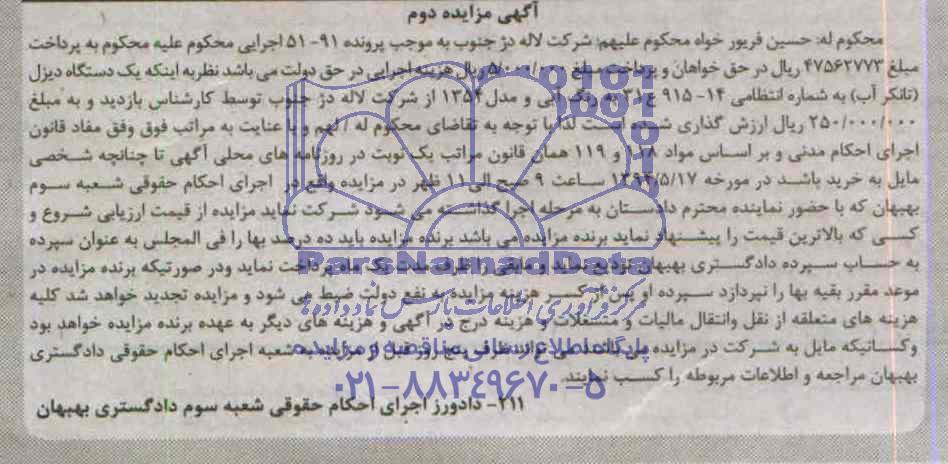 آگهی مزایده دوم
محکوم له: حسین فریور خواه محکوم علیهم: شرکت لاله دژ جنوب به موجب پرونده ۹۱-۵۱ اجرایی محکوم علیه محکوم به پرداخت
مبلغ ۴۷۵۶۲۷۷۳ ریال در حق خواهان و پرداخت مبلغ ۵/۰۰۰/۰۰۰ ریال هزینه اجرایی در حق دولت می باشد نظر به اینکه یک دستگاه دیزل
(تانکر آب) به شماره انتظامی ۱۴- ۹۱۵ ع ۳۱ به رنگ آبی و مدل ۱۳۵۴ از شرکت لاله دژ جنوب توسط کارشناس بازدید و به مبلغ
۲۵۰/۰۰۰/۰۰۰ ریال ارزش گذاری شده است لذا با توجه به تقاضای محکوم له / لهم و با عنایت به مراتب فوق وفق مفاد قانون
اجرای احکام مدنی و بر اساس مواد ۱۱۸ و ۱۱۹ همان قانون مراتب یک نوبت در روزنامه های محلی آگهی تا چنانچه شخصی
مایل به خرید باشد در مورخه ۱۳۹۴/۵/۱۷ ساعت ۹ صبح الی ۱۱ ظهر در مزایده واقع در اجرای احکام حقوقی شعبه سوم
بهبهان که با حضور نماینده محترم دادستان به مرحله اجرا گذاشته می شود شرکت نماید مزایده از قیمت ارزیابی شروع و
کسی که بالاترین قیمت را پیشنهاد نماید برنده مزایده می باشد برنده مزایده باید ده درصد بها را فی المجلس به عنوان سپرده
به حساب سپرده دادگستری بهبهان تودیع نماید و مابقی را ظرف مدت یک ماه پرداخت نماید ودر صورتیکه برنده مزایده در
موعد مقرر بقیه بها را نپردازد سپرده او پس از کسر هزینه مزایده به نفع دولت ضبط می شود و مزایده تجدید خواهد شد کلیه
هزینه های متعلقه از نقل وانتقال مالیات و مستغلات و هزینه درج در آگهی و هزینه های دیگر به عهده برنده مزایده خواهد بود
وکسانیکه مایل به شرکت در مزایده می باشند می توانند ظرف پنج روز قبل از مزایده به شعبه اجرای احکام حقوقی دادگستری
بهبهان مراجعه و اطلاعات مربوطه را کسب نمایند
۲۱۱- دادورز اجرای احکام حقوقی شعبه سوم دادگستری بهبهان
ParsNamadData
مرکز فرآوری اطلاعات پارس نماد داده ها
پایگاه اطلاع رسانی مناقصه و مزایده
۰۲۱-۸۸۳۴۹۶۷۰-۵